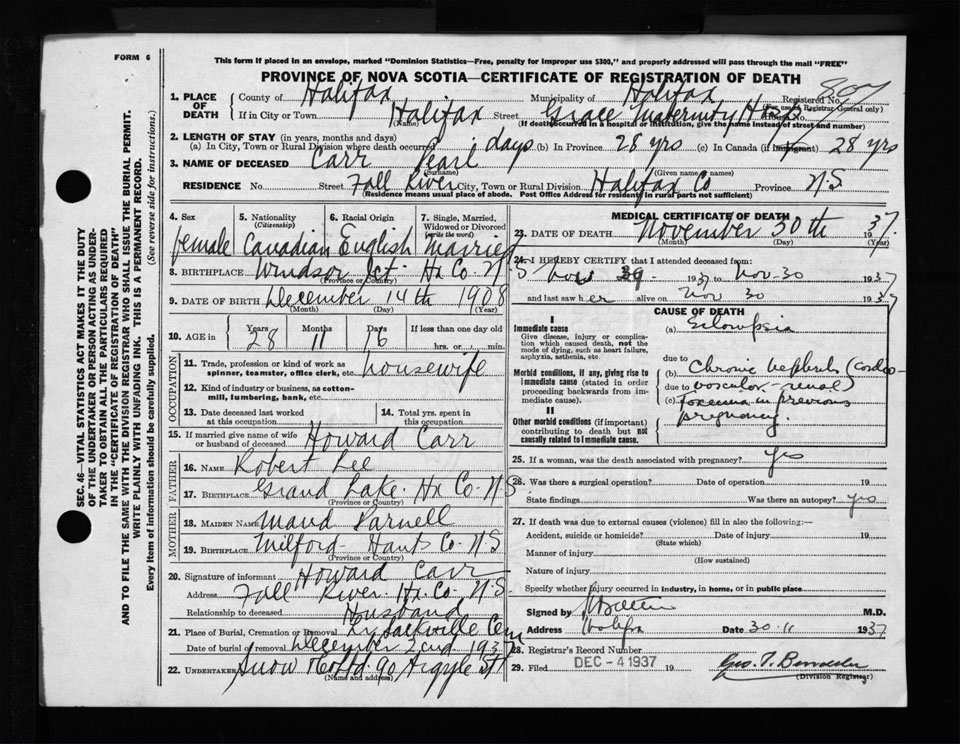 FORM 6
This form if placed in an envelope, marked "Dominion Statistics—Free, penalty for improper use $300," and properly addressed will pass through the mail "FREE"
PROVINCE OF NOVA SCOTIA—CERTIFICATE OF REGISTRATION OF DEATH
1. PLACE OF DEATH County of Halifax Municipality of Halifax Registered No. 807
(For use of Registrar General only)
If in City or Town Halifax Street Grace Maternity Hosp
(Name) (If death occurred in a hospital or institution, give the name instead of street and number)
2. LENGTH OF STAY (in years, months and days)
(a) In City, Town or Rural Division where death occurred 1 days (b) In Province 28 yrs (c) In Canada (if immigrant) 28 yrs
3. NAME OF DECEASED Carr Pearl
(Surname) (Given name or names)
RESIDENCE No. Street Fall River City, Town or Rural Division Halifax Co Province N.S.
(Residence means usual place of abode. Post Office Address for residents in rural parts not sufficient)
4. Sex 5. Nationality (Citizenship) 6. Racial Origin 7. Single, Married, Widowed or Divorced (write the word)
female Canadian English Married
8. BIRTHPLACE Windsor Jct. Hx Co. N.S.
(Province or Country)
9. DATE OF BIRTH December 14th 1908
(Month) (Day) (Year)
10. AGE in Years Months Days If less than one day old
28 11 16 hrs. or min.
OCCUPATION
11. Trade, profession or kind of work as spinner, teamster, office clerk, etc. housewife
12. Kind of industry or business, as cotton-mill, lumbering, bank, etc.
13. Date deceased last worked at this occupation
14. Total yrs. spent in this occupation
15. If married give name of wife or husband of deceased Howard Carr
FATHER
16. NAME Robert Lee
17. BIRTHPLACE Grand Lake. Hx Co. N.S.
(Province or Country)
MOTHER
18. MAIDEN NAME Maud Parnell
19. BIRTHPLACE Milford Hants Co. N.S
(Province or Country)
20. Signature of informant Howard Carr
Address Fall River. Hx. Co. N.S.
Relationship to deceased Husband
21. Place of Burial, Cremation or Removal Lr Sackville Cem
Date of burial or removal December 2nd 1937
22. UNDERTAKER Snow & Co Ltd. 90 Argyle St
(Name and address)
MEDICAL CERTIFICATE OF DEATH
23. DATE OF DEATH November 30th 1937.
(Month) (Day) (Year)
24. I HEREBY CERTIFY that I attended deceased from:
Nov 1937 to Nov-30 1937
and last saw her alive on Nov 30 1937
CAUSE OF DEATH
I
Immediate cause
Give disease, injury or complication which caused death, not the mode of dying, such as heart failure, asphyxia, asthenia, etc.
(a) Eclampsia
due to
Morbid conditions, if any, giving rise to immediate cause (stated in order proceeding backwards from immediate cause).
(b) Chronic nephritis (cardio-
due to vascular-renal)
(c) Toxemia in previous
pregnancy.
II
Other morbid conditions (if important) contributing to death but not causally related to immediate cause.
25. If a woman, was the death associated with pregnancy? yes
26. Was there a surgical operation? Date of operation 19
State findings Was there an autopsy? yes
27. If death was due to external causes (violence) fill in also the following:—
Accident, suicide or homicide? Date of injury 19
(State which)
Manner of injury
(How sustained)
Nature of injury
Specify whether injury occurred in industry, in home, or in public place
Signed by M.D.
Address Halifax Date 30.11 1937
28. Registrar's Record Number
29. Filed DEC - 4 1937 19
(Division Registrar)
SEC. 46—VITAL STATISTICS ACT MAKES IT THE DUTY
OF THE UNDERTAKER OR PERSON ACTING AS UNDER-
TAKER TO OBTAIN ALL THE PARTICULARS REQUIRED
IN THE "CERTIFICATE OF REGISTRATION OF DEATH"
AND TO FILE THE SAME WITH THE DIVISION REGISTRAR WHO SHALL ISSUE THE BURIAL PERMIT.
WRITE PLAINLY WITH UNFADING INK. THIS IS A PERMANENT RECORD.
Every item of information should be carefully supplied. (See reverse side for instructions.)